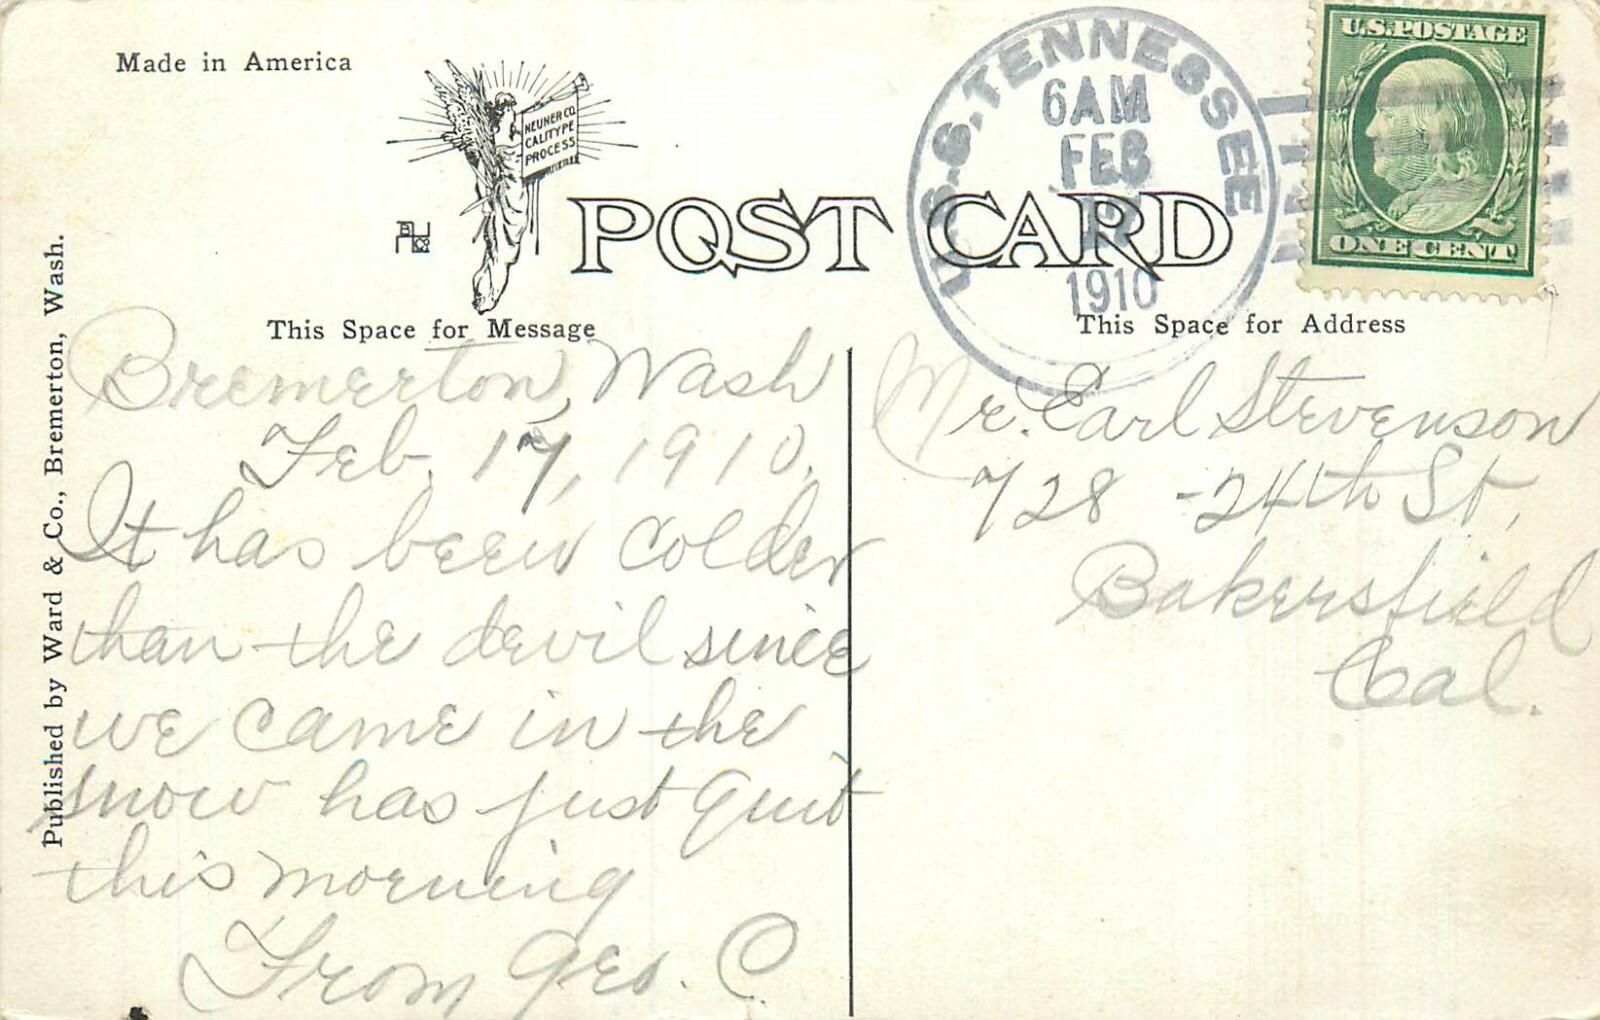 Made in America
NEUNER CO
CALITYPE
PROCESS
POST CARD
U.S.S. TENNESSEE
6 AM
FEB
1910
U.S. POSTAGE
ONE CENT
Published by Ward & Co., Bremerton, Wash.
This Space for Message
Bremerton, Wash
Feb. 17, 1910.
It has been colder
than the devil since
we came in the
snow has just quit
this morning
From Geo. C.
This Space for Address
Mr. Earl Stevenson
728 - 24th St,
Bakersfield
Cal.